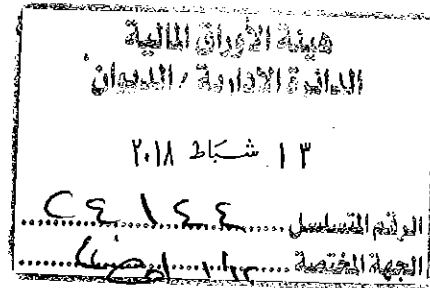 هيئة الأوراق المالية
الدائرة الإدارية / الديوان
١٣ شباط ٢٠١٨
الرقم المتسلسل
الجهة المختصة